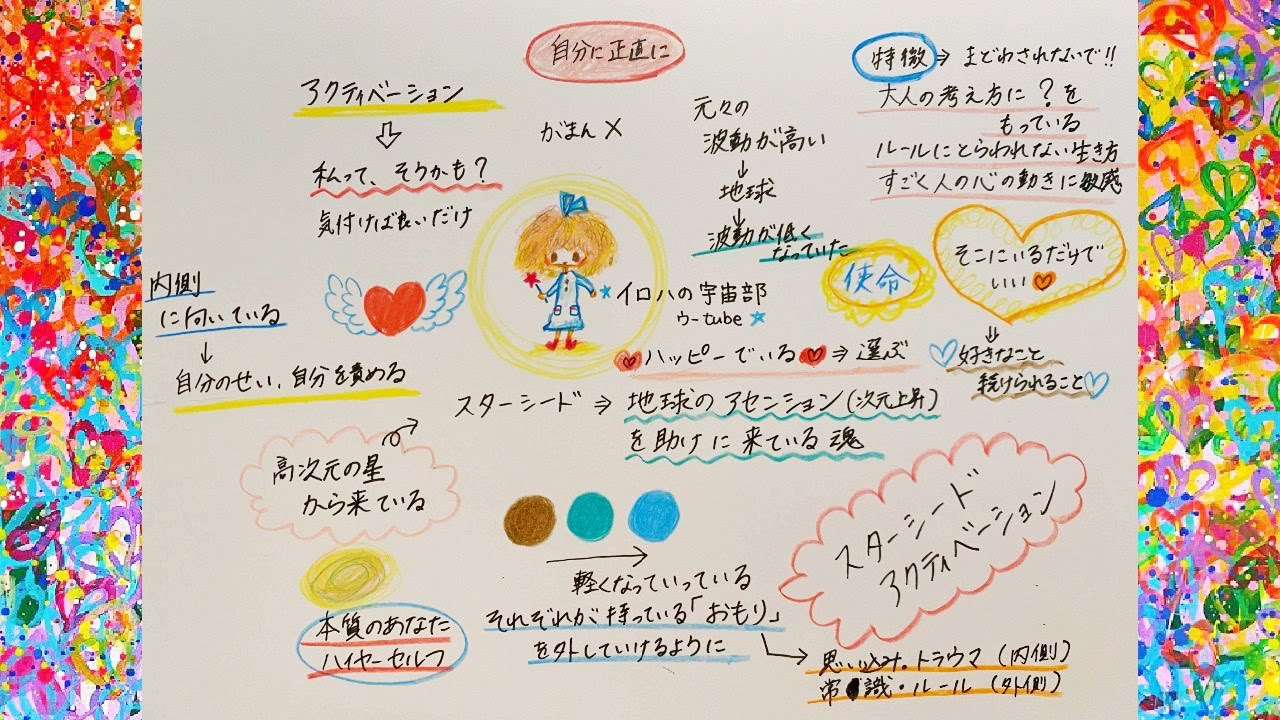 自分に正直に
特徴⇒まどわされないで!!
大人の考え方に?を
もっている
ルールにとらわれない生き方
すごく人の心の動きに敏感
アクティベーション
⇩
私って、そうかも?
気付けば良いだけ
がまん×
元々の
波動が高い
↓
地球
↓
波動が低く
なっていた
使命
そこにいるだけで
いい
⇓
好きなこと
続けられること
内側
に向いている
↓
自分のせい、自分を責める
イロハの宇宙部
ウーtube
ハッピーでいる⇒選ぶ
スターシード⇒地球のアセンション(次元上昇)
を助けに来ている魂
高次元の星
から来ている
本質のあなた
ハイヤーセルフ
軽くなっていっている
それぞれが持っている「おもり」
を外していけるように
スターシード
アクティベーション
思い込み・トラウマ(内側)
常識・ルール(外側)